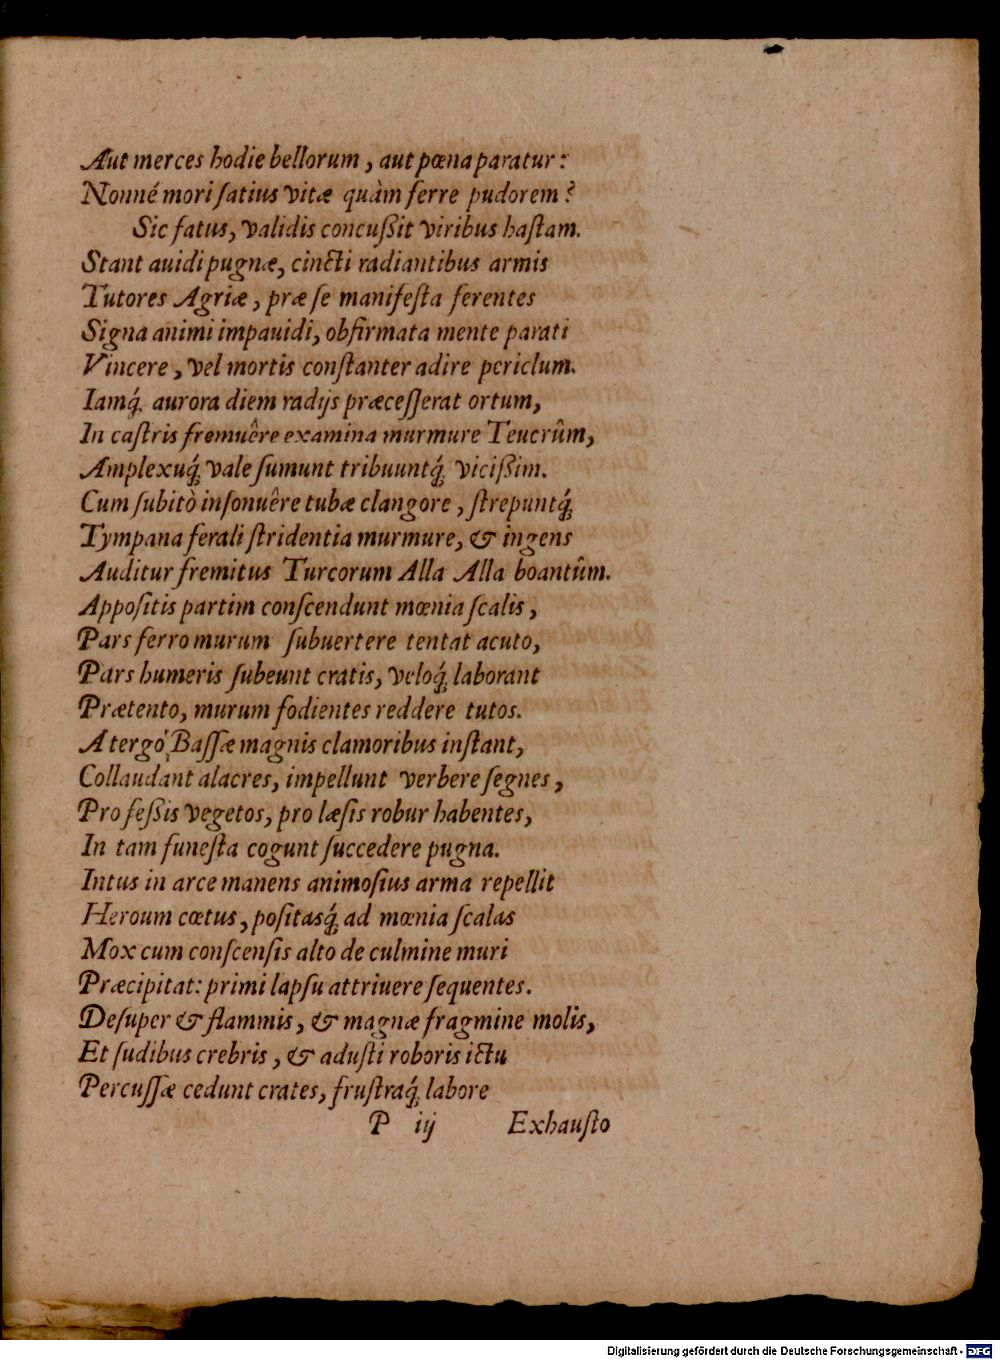 Aut merces hodie bellorum, aut pœna paratur:
Nonné mori ſatius vitæ quàm ferre pudorem?
Sic fatus, validis concuſſit viribus haſtam.
Stant auidi pugnæ, cincti radiantibus armis
Tutores Agriæ, præ ſe manifeſta ferentes
Signa animi impauidi, obfirmata mente parati
Vincere, vel mortis conſtanter adire periclum.
Iamq́. aurora diem radijs præceſſerat ortum,
In caſtris fremuêre examina murmure Teucrûm,
Amplexuq́; vale ſumunt tribuuntq́; viciſſim.
Cum ſubitò inſonuêre tubæ clangore, ſtrepuntq́;
Tympana ferali ſtridentia murmure, & ingens
Auditur fremitus Turcorum Alla Alla boantûm.
Appoſitis partim conſcendunt mœnia ſcalis,
Pars ferro murum ſubuertere tentat acuto,
Pars humeris ſubeunt cratis, veloq́; laborant
Prætento, murum fodientes reddere tutos.
A tergo Baſſæ magnis clamoribus inſtant,
Collaudant alacres, impellunt verbere ſegnes,
Pro feſſis vegetos, pro læſis robur habentes,
In tam funeſta cogunt ſuccedere pugna.
Intus in arce manens animoſius arma repellit
Heroum cœtus, poſitasq́; ad mœnia ſcalas
Mox cum conſcenſis alto de culmine muri
Præcipitat: primi lapſu attriuere ſequentes.
Deſuper & flammis, & magnæ fragmine molis,
Et ſudibus crebris, & aduſti roboris ictu
Percuſſæ cedunt crates, fruſtraq́; labore
P iij Exhauſto
Digitalisierung gefördert durch die Deutsche Forschungsgemeinschaft - DFG